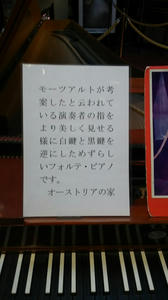 モーツアルトが考
案したと云われて
いる演奏者の指を
より美しく見せる
様に白鍵と黒鍵を
逆にしためずらし
いフォルテ・ピアノ
です。
オーストリアの家